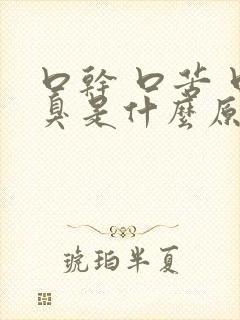 口幹 口苦 口
臭是什麼原
琥珀半夏